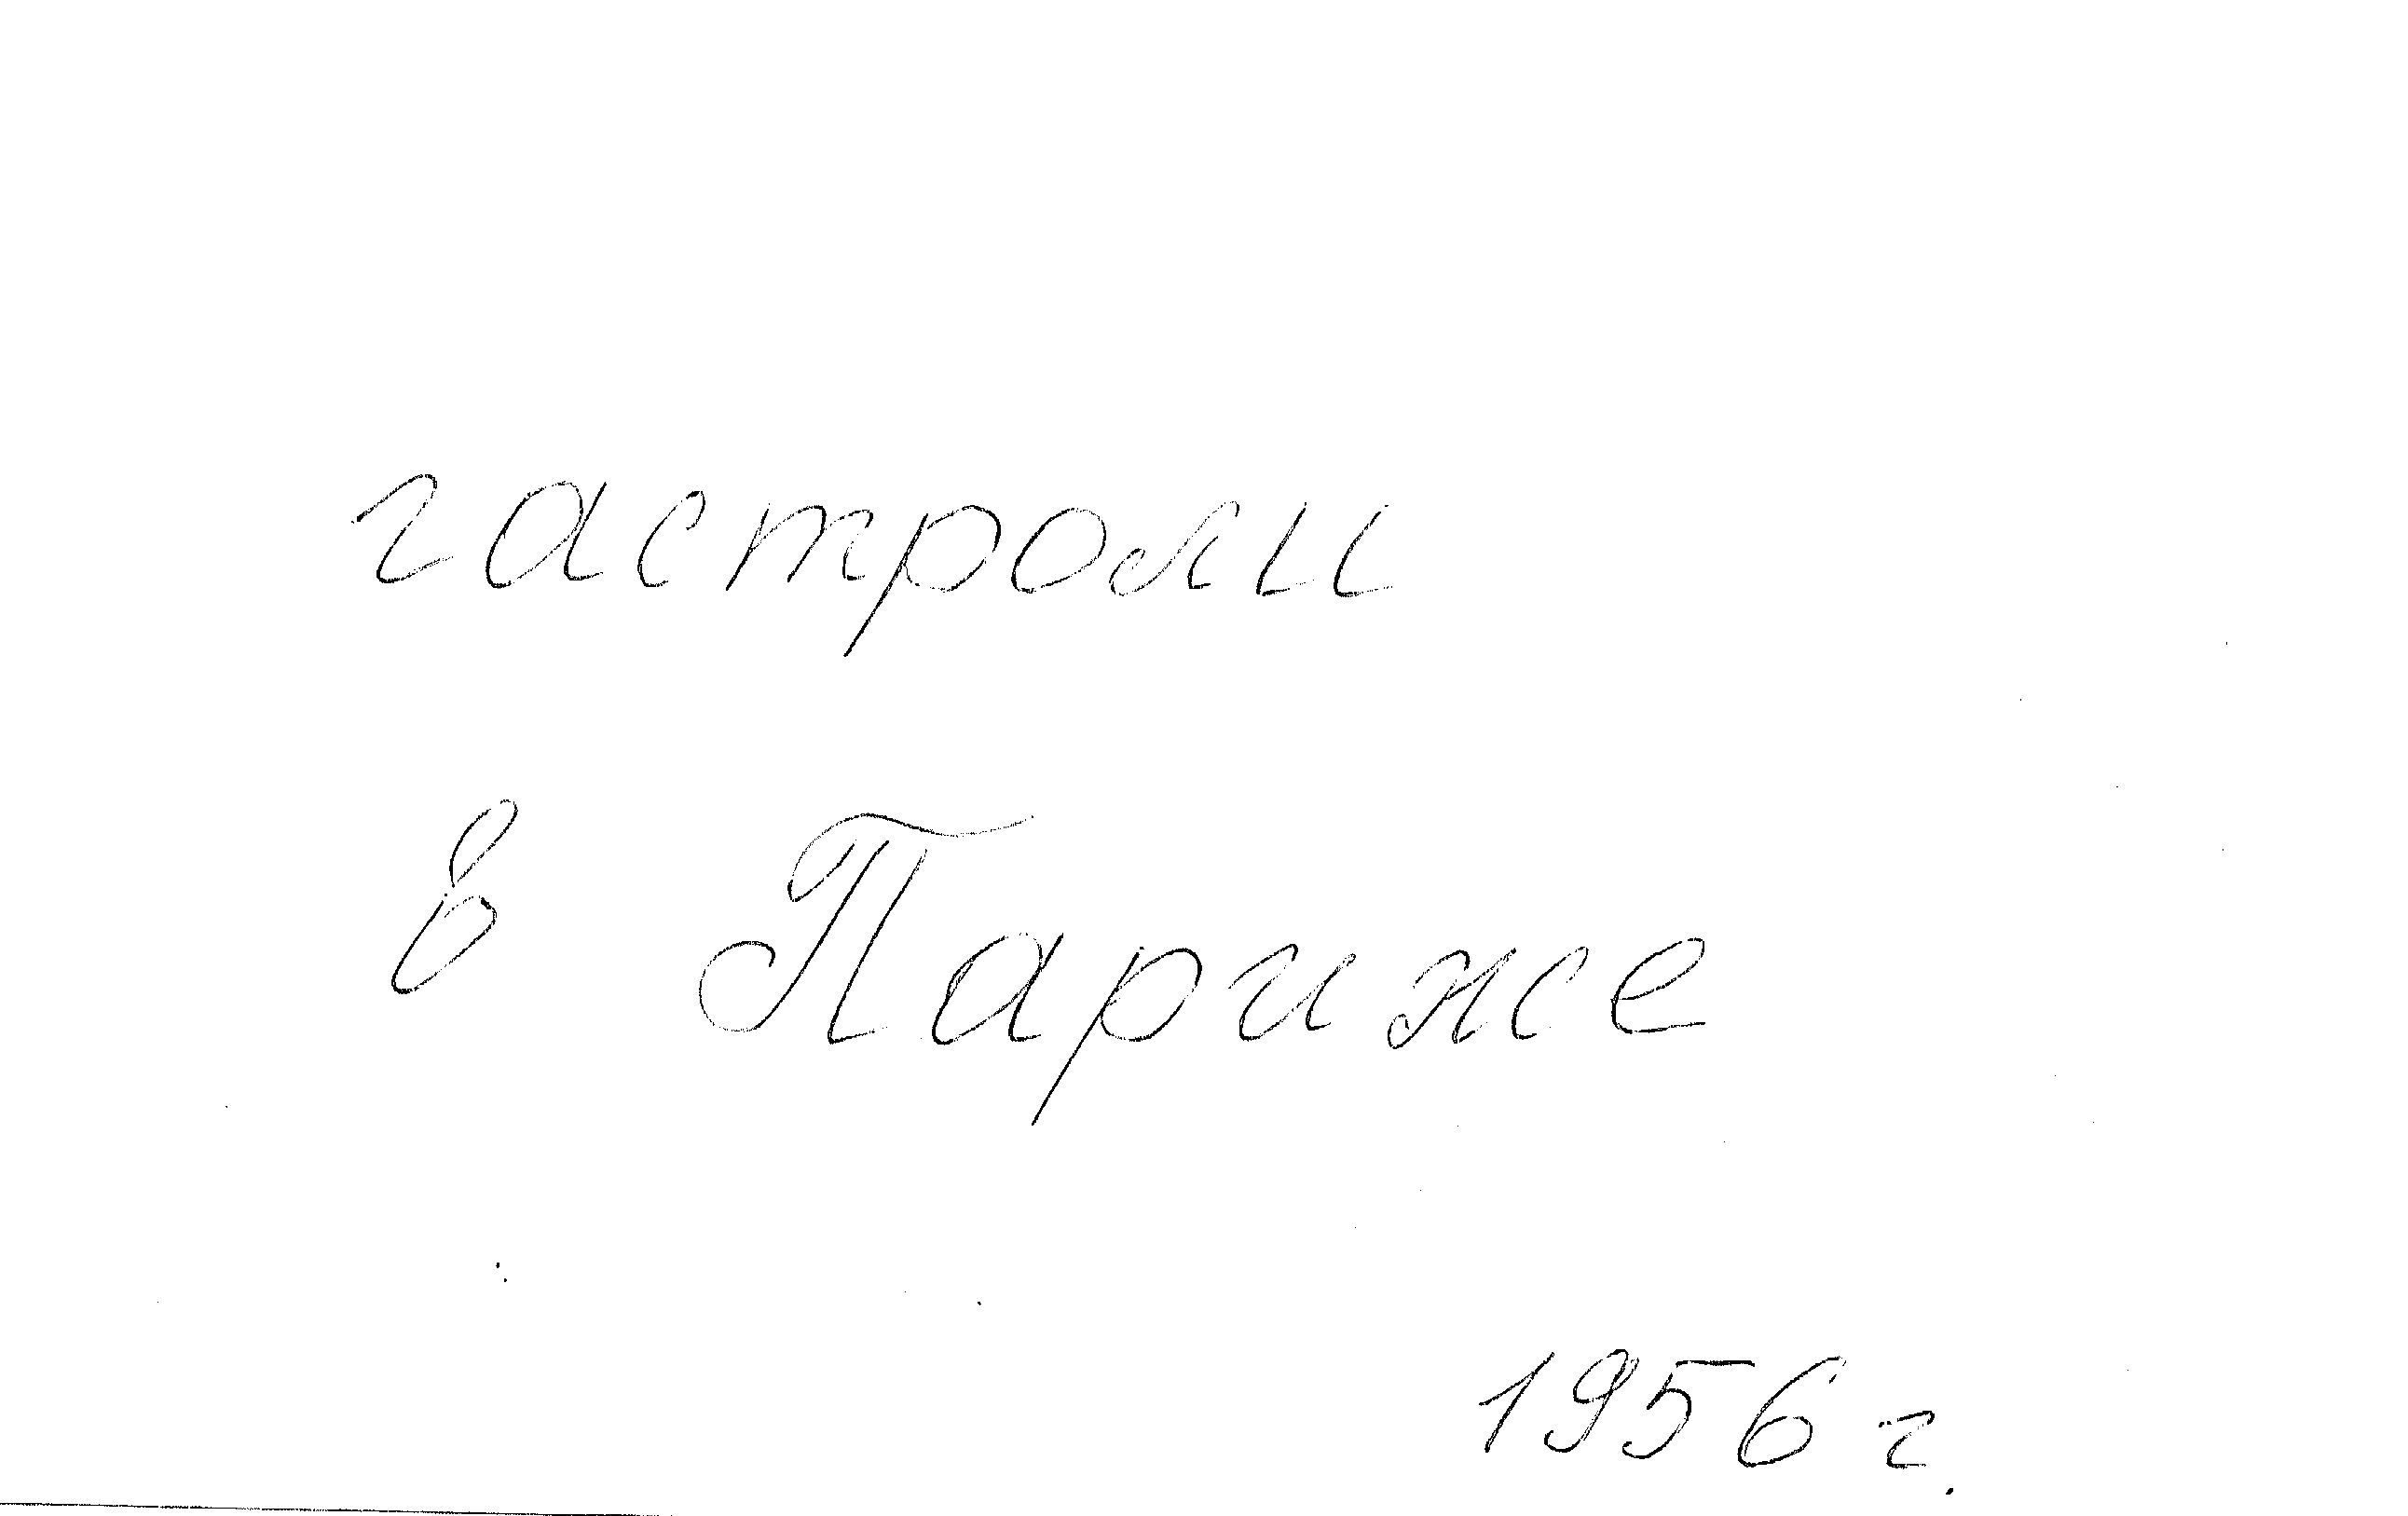 гастроли
в Париже
1956 г.